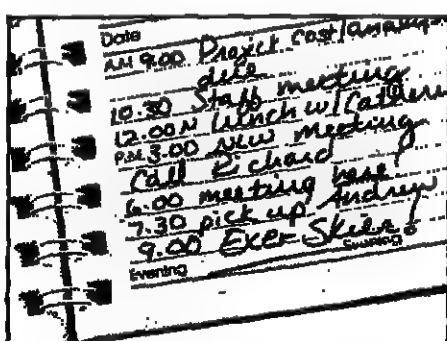 Date
AM 9.00 Project cost/
date
10.30 Staff meeting
12.00 N Lunch w/
P.M. 3.00 New meeting
Call Richard
6.00 meeting here
7.30 pick up Andrew
9.00 Exer-
Evening Evening